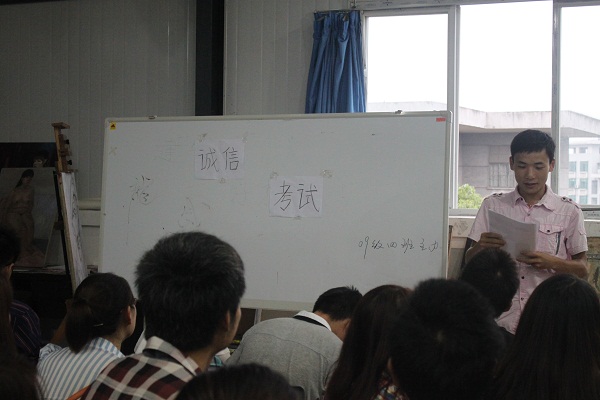 诚信
考试
09级四班主办